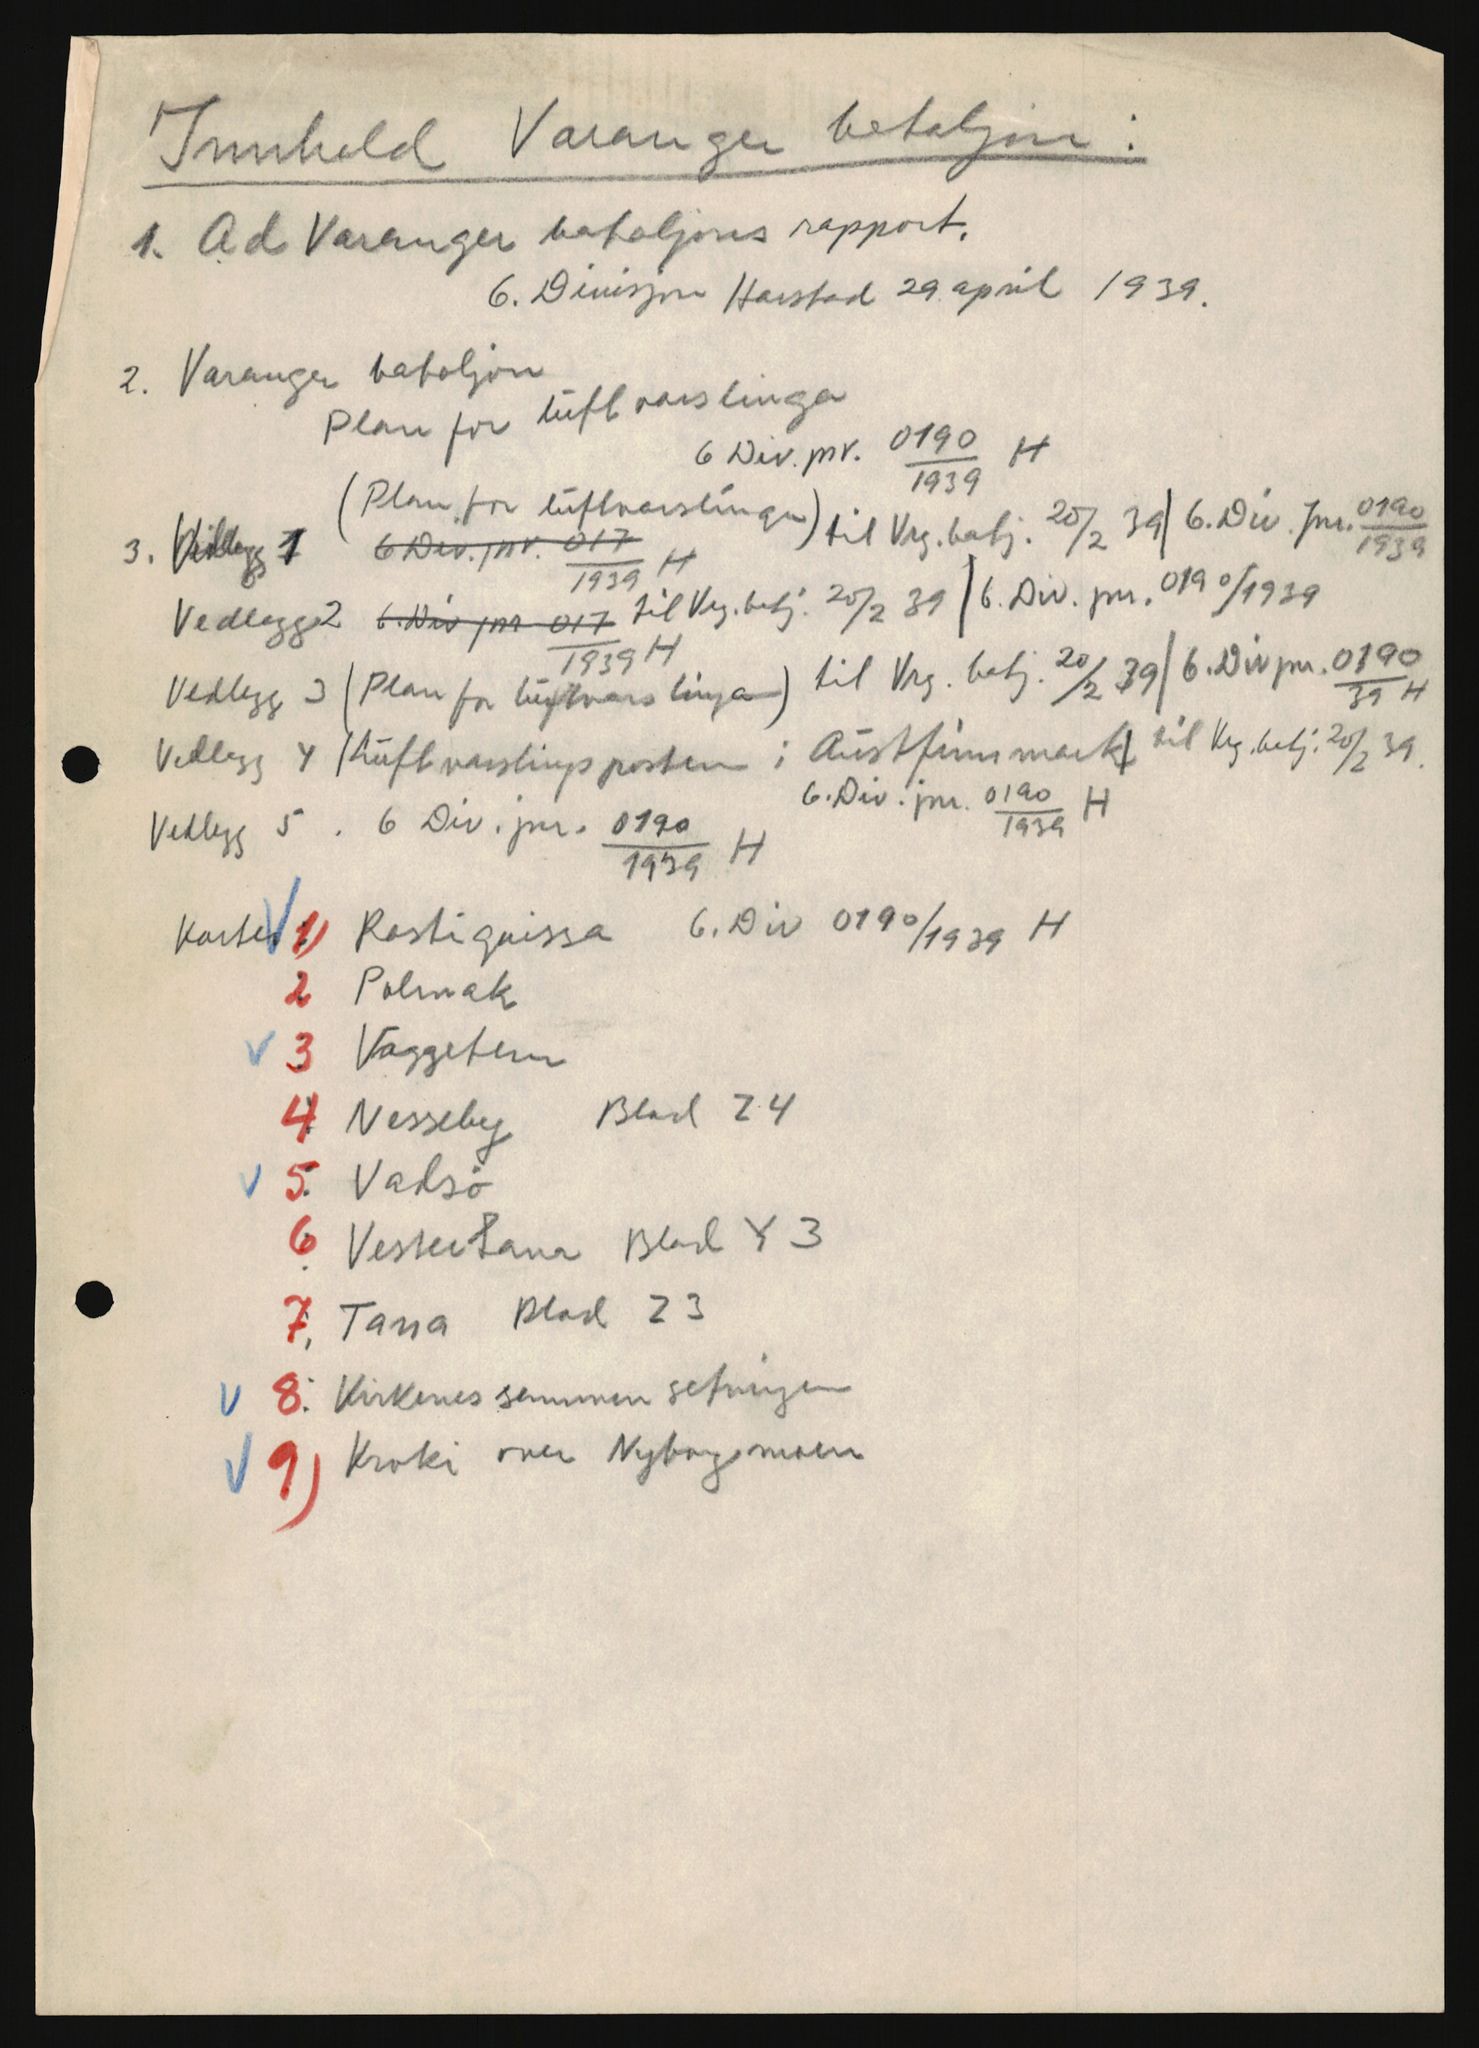 Innhold Varanger bataljon:
1. Ad Varanger bataljons rapport.
6. Divisjon Harstad 29 april 1939.
2. Varanger bataljon
Plan for luftvarslinga
6 Div. jnr. 0190/1939 H
3. Vedlegg 1 (Plan for luftvarslinga) til Vrg. batj. 20/2 39 / 6. Div. Jnr. 0190/1939
6 Div. jnr. 017/1939 H
Vedlegg 2 6. Div jnr 017/1939 H til Vrg. batj. 20/2 39 / 6. Div. jnr. 0190/1939
Vedlegg 3 (Plan for luftvarslinga) til Vrg. batj. 20/2 39 / 6. Div jnr. 0190/39 H
Vedlegg 4 (Luftvarslingsposten i Austfinnmark) til Vrg. batj. 20/2 39.
6. Div. jnr. 0190/1939 H
Vedlegg 5. 6 Div. jnr. 0190/1939 H
Karter 1) Rastigaissa 6. Div 0190/1939 H
2 Polmak
3 Vaggetem
4 Nesseby Blad Z4
5. Vadsö
6. Vestertana Blad Y3
7. Tana Blad Z3
8. Kirkenes
9) Kroki over Nyborgmoen